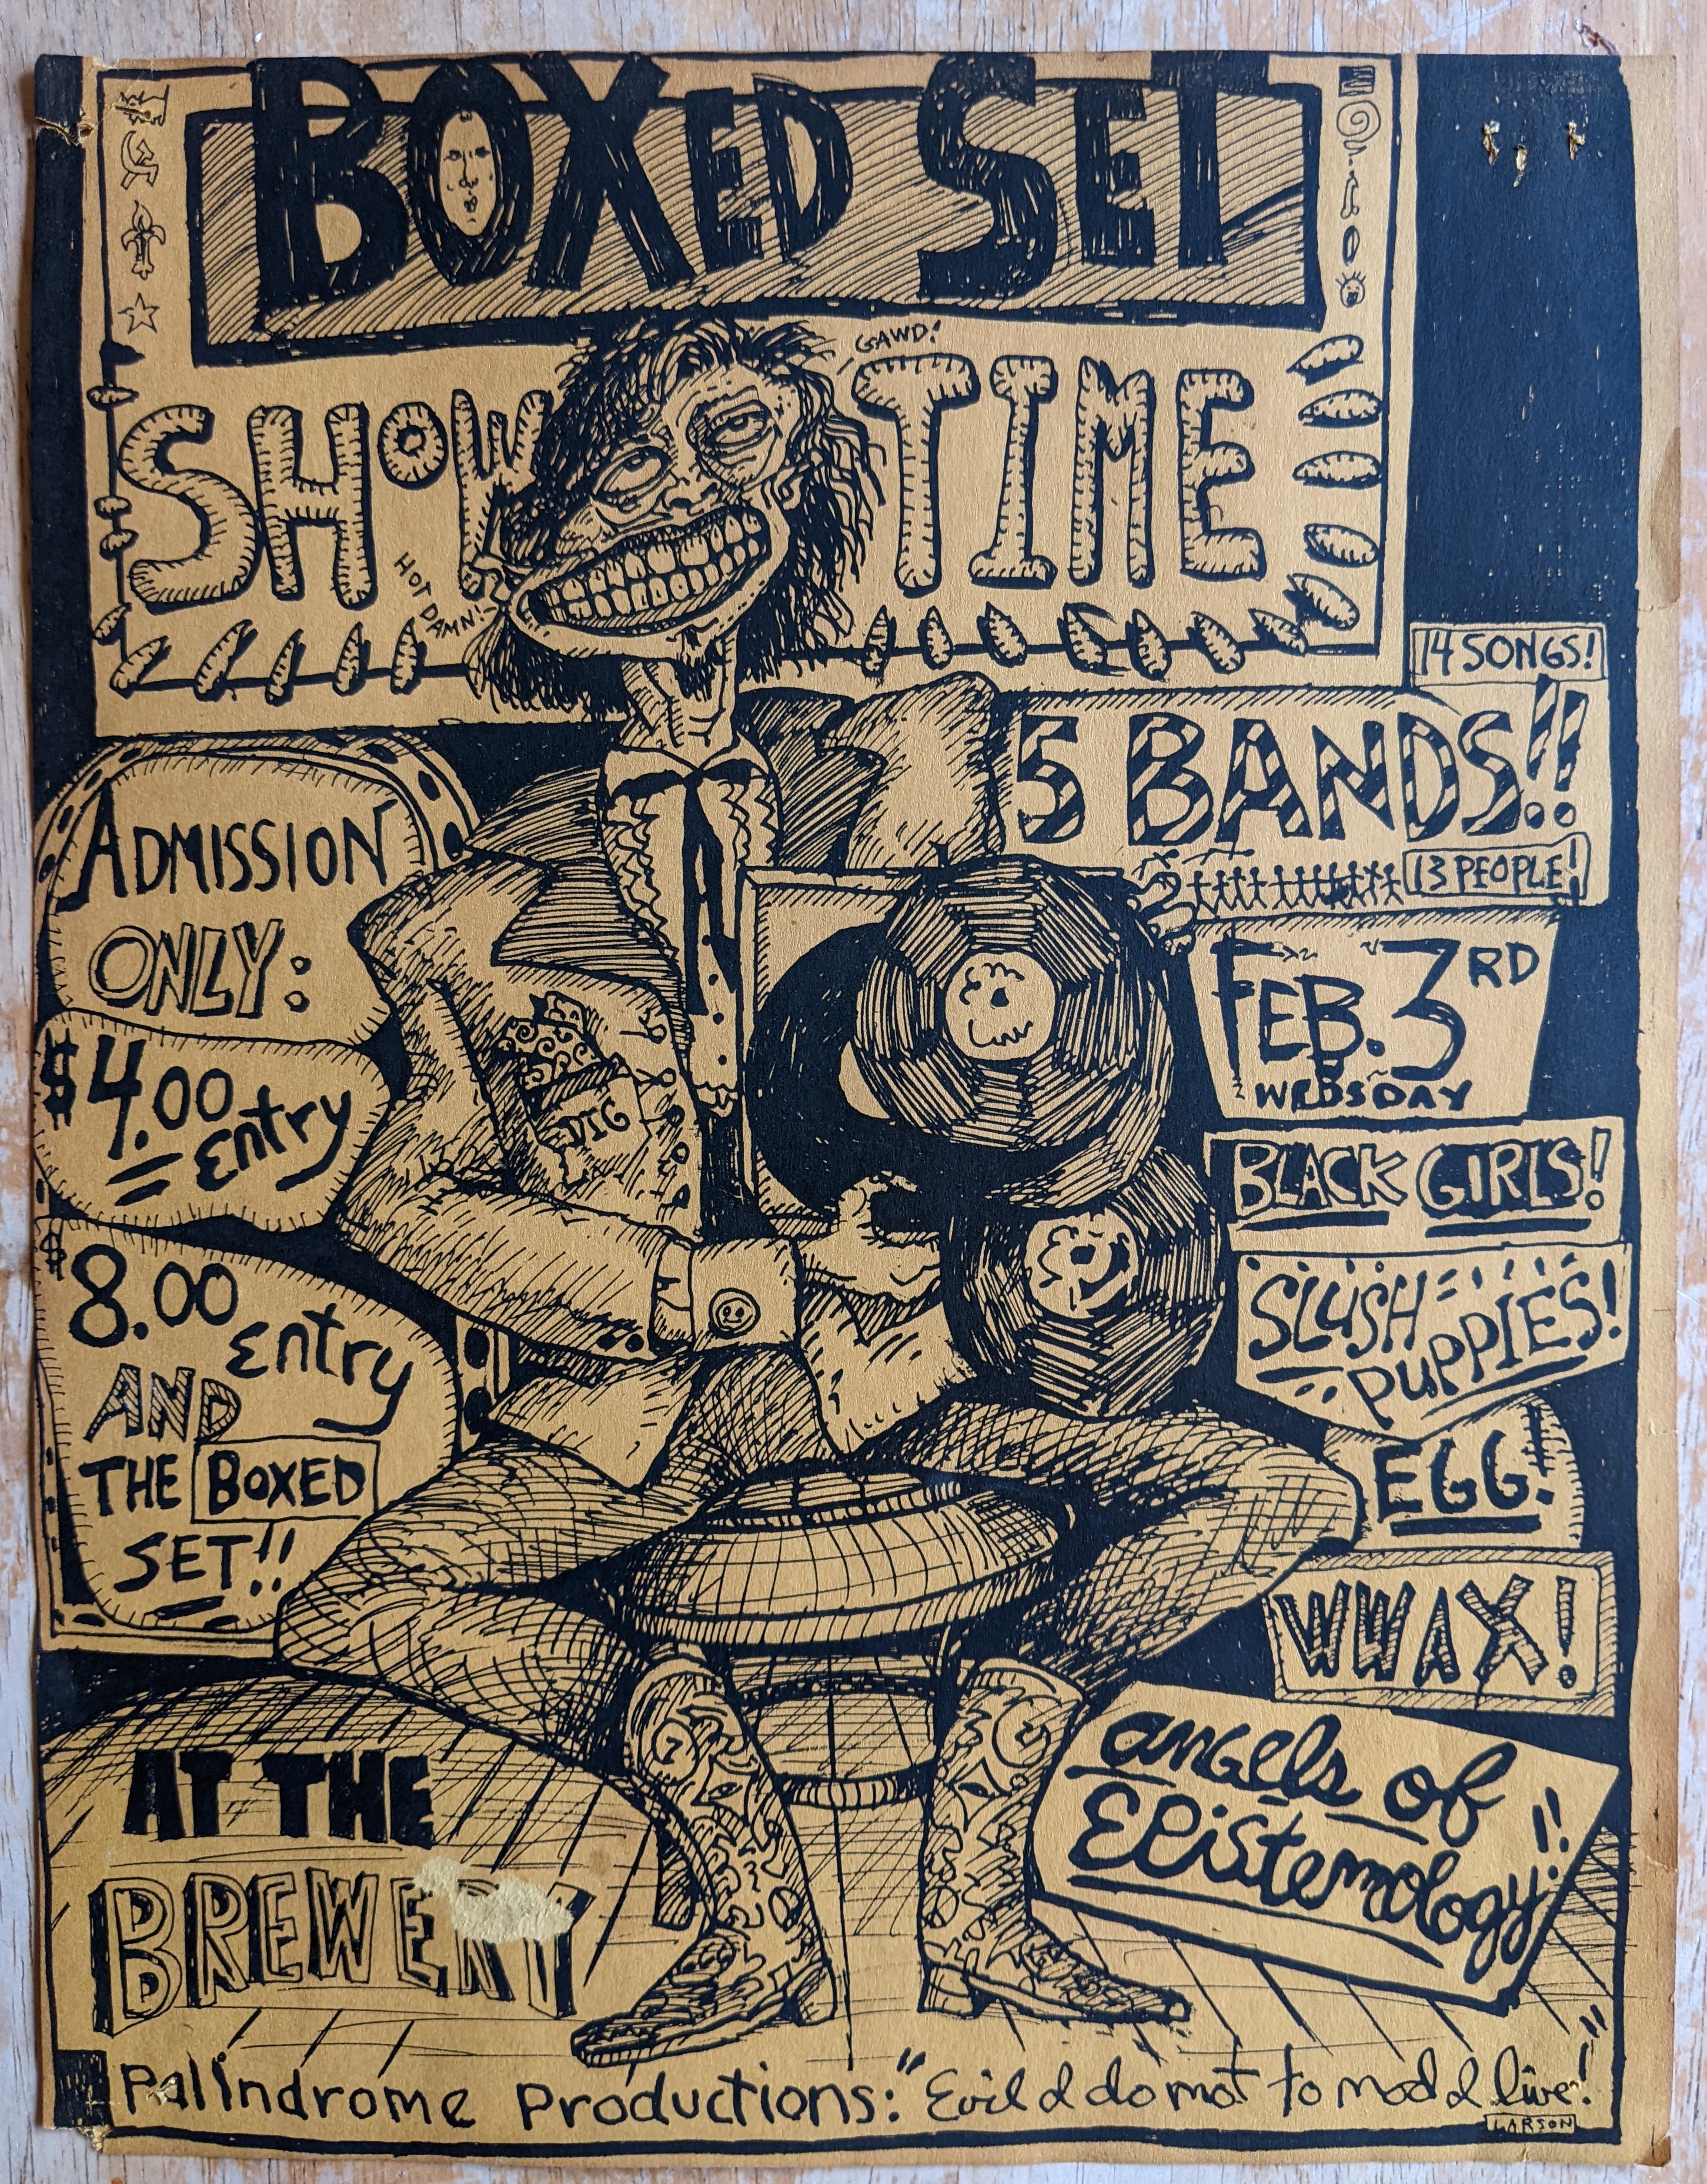 BOXED SET
GAWD!
SHOW TIME
HOT DAMN!
14 SONGS!
5 BANDS!!
13 PEOPLE!
ADMISSION
ONLY:
$4.00
Entry
$8.00
Entry
AND
THE BOXED
SET!!
DIG
FEB. 3RD
WEDSDAY
BLACK GIRLS!
SLUSH
PUPPIES!
EGG!
WWAX!
angels of
Epistemology!!
AT THE
BREWERY
Palindrome Productions: "Evil d do not to nod d live!"
LARSON